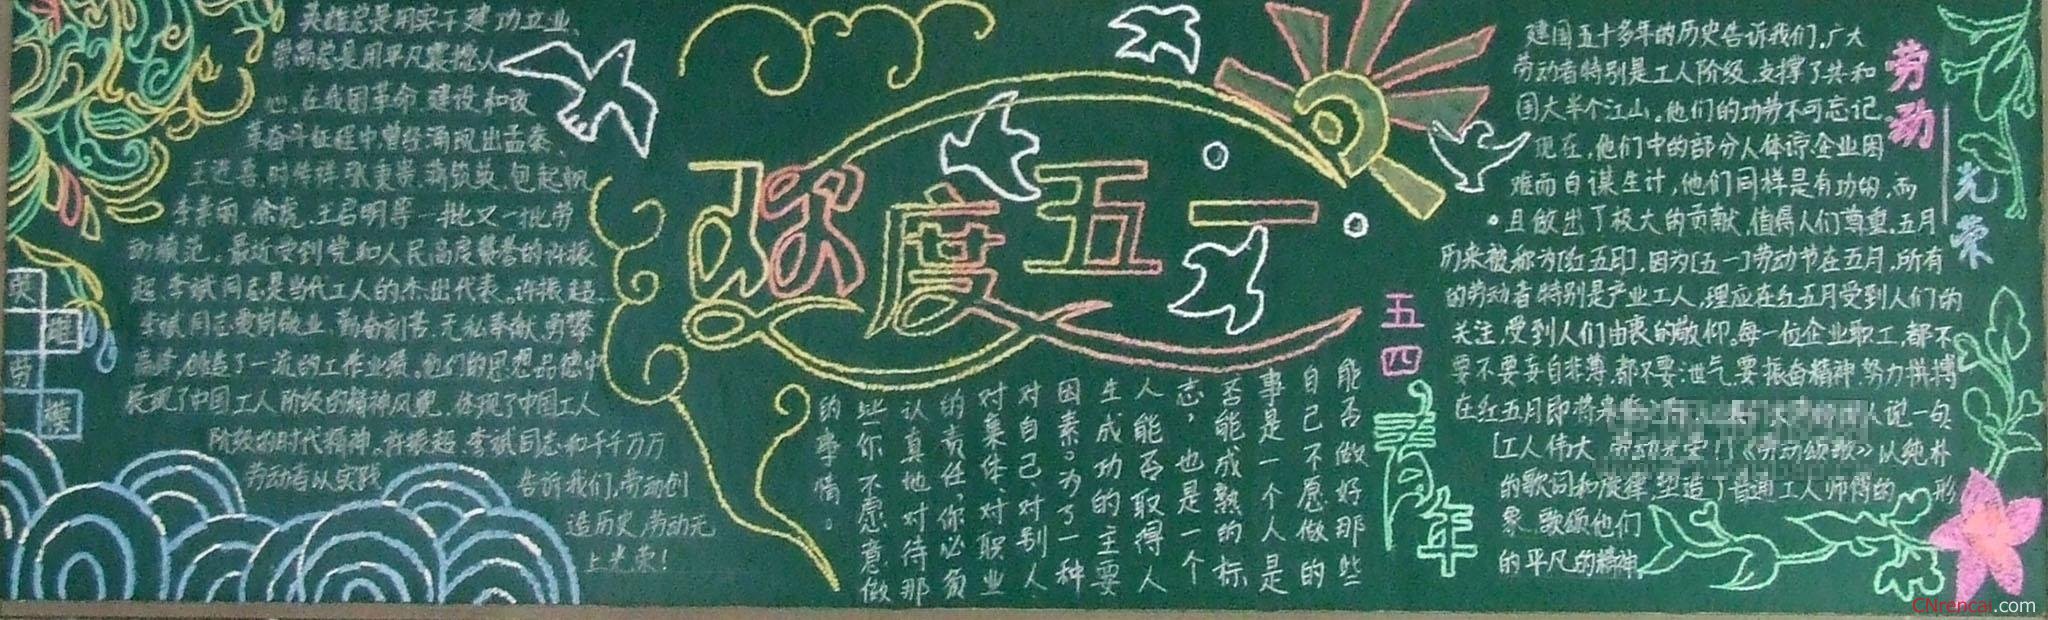 英雄总是用实干建功立业、
崇高总是用平凡震撼人
心。在我国革命、建设和改
革奋斗征程中,曾经涌现出孟泰、
王进喜、时传祥、张秉贵、蒋筑英、包起帆、
李素丽、徐虎、王启明等一批又一批劳
动模范。最近受到党和人民高度赞誉的许振
超、李斌同志是当代工人的杰出代表。许振超、
李斌同志爱岗敬业、勤奋刻苦、无私奉献、勇攀
高峰,创造了一流的工作业绩。他们的思想品德中
展现了中国工人阶级的精神风貌,体现了中国工人
阶级的时代精神。许振超、李斌同志和千千万万
劳动者以实践
告诉我们,劳动创
造历史,劳动无
上光荣!
英
雄
劳
模
欢度五一
能否做好那些
自己不愿做的
事是一个人是
否能成熟的标
志,也是一个
人能否取得人
生成功的主要
因素。为了一种
对自己、对别人
对集体、对职业
的责任,你必须
认真地对待那
些你不愿意做
的事情。
五四
青年
建国五十多年的历史告诉我们,广大
劳动者特别是工人阶级,支撑了共和
国大半个江山。他们的功劳不可忘记
现在,他们中的部分人体谅企业困
难而自谋生计,他们同样是有功的,而
且做出了极大的贡献,值得人们尊重。五月
历来被称为[红五月],因为[五一]劳动节在五月,所有
的劳动者特别是产业工人,理应在红五月受到人们的
关注,受到人们由衷的敬仰。每一位企业职工,都不
要不要妄自菲薄,都不要泄气,要振奋精神,努力拼搏
在红五月即将来
人说一句
[工人伟大,劳动光荣!]《劳动颂歌》以纯朴
的歌词和旋律,塑造了普通工人师傅的形
象,歌颂他们
的平凡的精神。
劳动
光荣
CNrencai.com